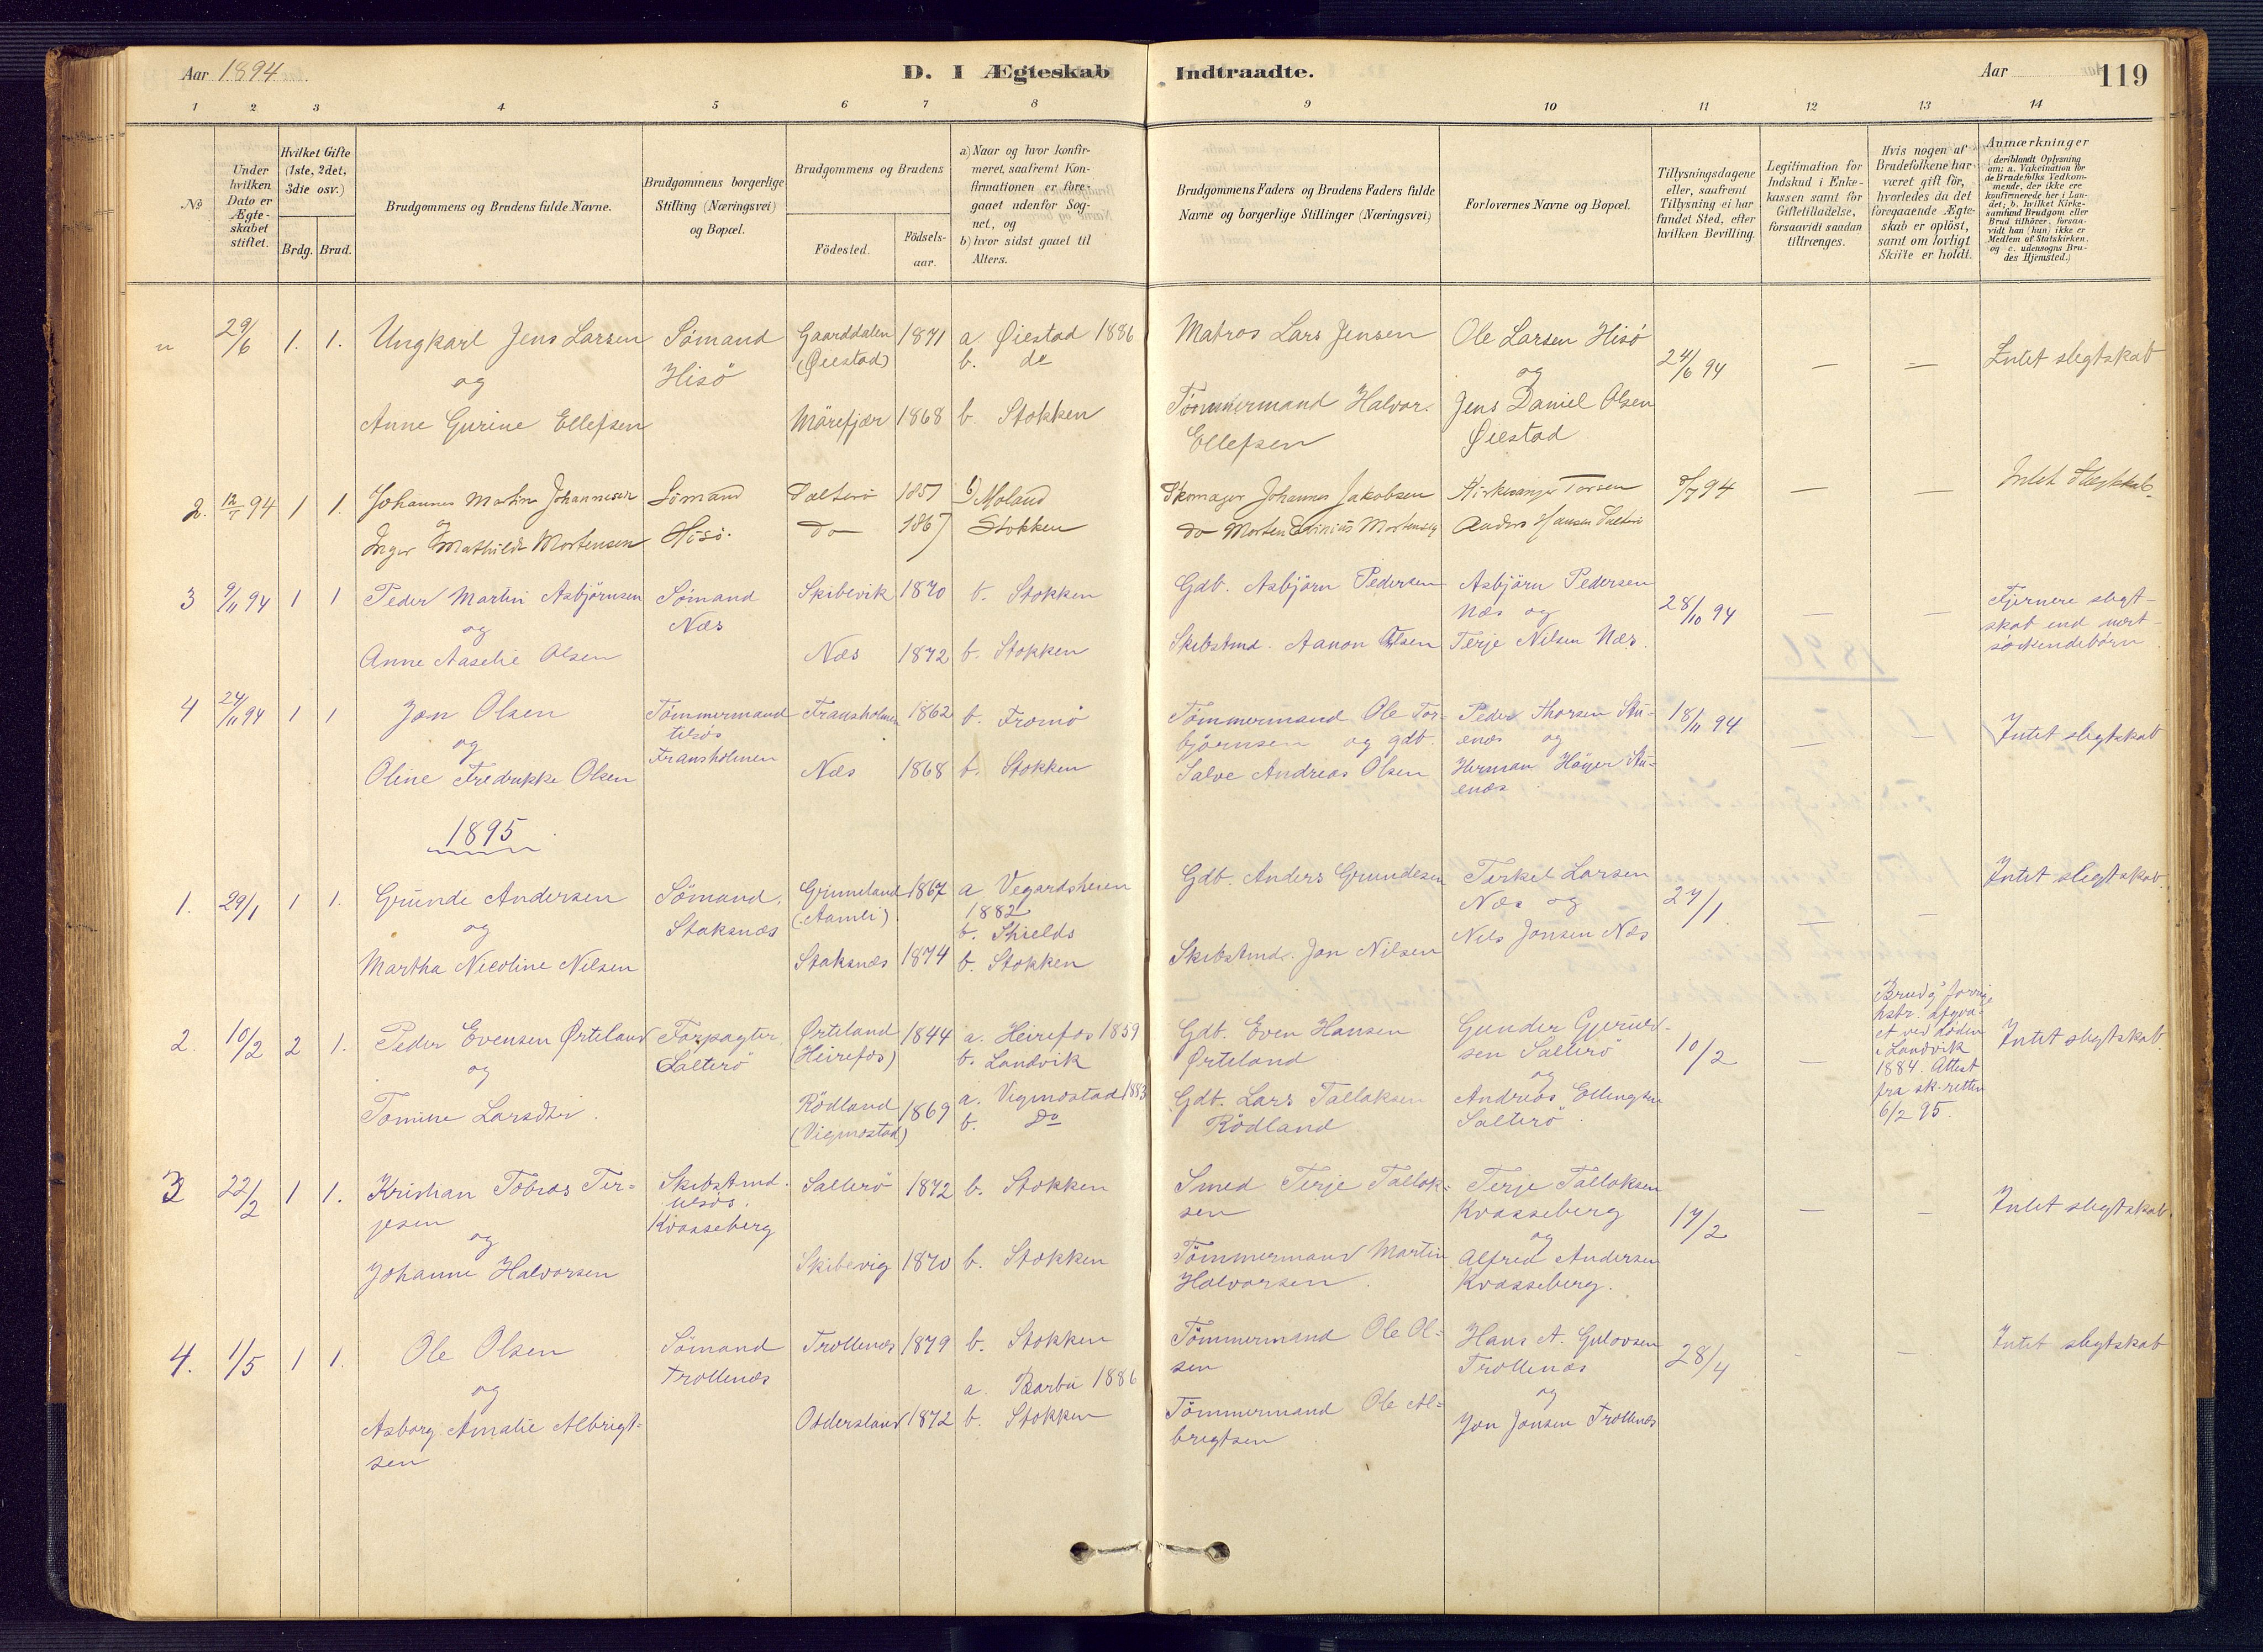 Aar 1894.
D. I Ægteskab
Indtraadte.
Aar
119
1 2 3 4 5 6 7 8 9 10 11 12 13 14
No
Under hvilken Dato er Ægteskabet stiftet.
Hvilket Gifte (1ste, 2det, 3die osv.)
Brdg. Brud.
Brudgommens og Brudens fulde Navne.
Brudgommens borgerlige Stilling (Næringsvei) og Bopæl.
Brudgommens og Brudens
Födested.
Födsels-aar.
a) Naar og hvor konfirmeret, saafremt Konfirmationen er foregaaet udenfor Sognet, og
b) hvor sidst gaaet til Alters.
Brudgommens Faders og Brudens Faders fulde Navne og borgerlige Stillinger (Næringsvei)
Forlovernes Navne og Bopæl.
Tillysningsdagene eller, saafremt Tillysning ei har fundet Sted, efter hvilken Bevilling.
Legitimation for Indskud i Enkekassen samt for Giftetilladelse, forsaavidt saadan tiltrænges.
Hvis nogen af Brudefolkene har været gift för, hvorledes da det foregaaende Ægteskab er oplöst, samt om lovligt Skifte er holdt.
Anmærkninger (deriblandt Oplysning om: a. Vakcination for de Brudefolks Vedkommende, der ikke ere konfirmerede her i Landet; b. hvilket Kirkesamfund Brudgom eller Brud tilhörer, forsaavidt han (hun) ikke er Medlem af Statskirken, og c. udensogns Brudes Hjemsted.)
" 29/6 1. 1. Ungkarl Jens Larsen Sømand Gaarddalen 1871 a Øiestad 1886 Matros Lars Jensen Ole Larsen Hisö 24/6 94 — — Intet slegtskab
og Hisö (Øiestad) b. do og
Anne Gurine Ellefsen Mörefjær 1868 b Stokken Tömmermand Halvor Jens Daniel Olsen
Ellefsen Øiestad
2. 12/7 94 1 1. Johannes Martin Johannesen Sømand Salterö 1857 b) Moland Skomager Johannes Jakobsen Kirkesanger Torsen 8/7 94 — — Intet Slegtskab.
og
Inger Mathilde Mortensen Hisö. do 1867 Stokken do Morten Mortensen Anders Hansen Salterö
3 9/11 94 1 1 Peder Martin Asbjörnsen Sømand Skibevik 1870 b. Stokken Gdb. Asbjörn Pedersen Asbjörn Pedersen 28/10 94 — — Fjernere slegt-
og Næs Næs og skab end nært-
Anne Aaselie Olsen Næs 1872 b. Stokken Skibstmd. Aanon Olsen Terje Nilsen Næs. södskendebörn
4 24/11 94 1 1 Jon Olsen Tömmermand Fransholmen 1862 b. Tromö Tömmermand Ole Tor- Peder Thorsen Stu- 18/11 94 — — Intet slegtskab
og tilsös björnsen og gdb. enes og
Oline Fredrikke Olsen Fransholmen Næs 1868 b. Stokken Salve Andreas Olsen Herman Höyer Stu-
enes
1895
1. 29/1 1 1. Grunde Andersen Sömand. Grimeland 1867 a Vegardsheien Gdb. Anders Grundesen Terkel Larsen 27/1. — — Intet slegtskab.
og Staksnæs (Aamli) 1882 Næs og
b. Shields Nils Jonsen Næs
Martha Nicoline Nilsen Staksnæs 1874 b. Stokken Skibstmd. Jon Nilsen
2. 10/2 2 1. Peder Evensen Örteland Forpagter Ørteland 1844 a. Heirefos 1859 Gdb. Even Hansen Gunder Gjeruld- 10/2 — Brudg. forrige Intet slegtskab.
og Salterö (Heirefos) b. Landvik Ørteland sen Salterö
hstr. afgaa-
et ved döden
i Landvik
1884. Attest
fra sk-retten
6/2 95.
og
Tomine Larsdtr. Rödland 1869 a. Vigmostad 1883 Gdb. Lars Tallaksen Andreas Ellingsen
(Vigmostad) b. Do Rödland Salterö
3 22/2 1 1. Kristian Tobias Ter- Skibstmd. Salterö 1872 b. Stokken Smed Terje Tallak- Terje Tallaksen 17/2 — — Intet slegtskab.
jesen tilsös. sen Kvasseberg
og Kvasseberg og
Johanne Halvorsen Skibevig 1870 b. Stokken Tömmermand Martin Alfred Andersen
Halvorsen. Kvasseberg.
4. 1/5 1 1. Ole Olsen Sömand Trollenes 1879 b. Stokken Tömmermand Ole Ol- Hans A. Gulovsen 28/4 - - Intet slegtskab
og Trollenæs sen Trollenæs
a. Barbu 1886 og
Asborg Amalie Albrigt- Odderstand 1872 b. Stokken Tömmermand Ole Al- Jon Jonsen Trollenæs
sen brigtsen